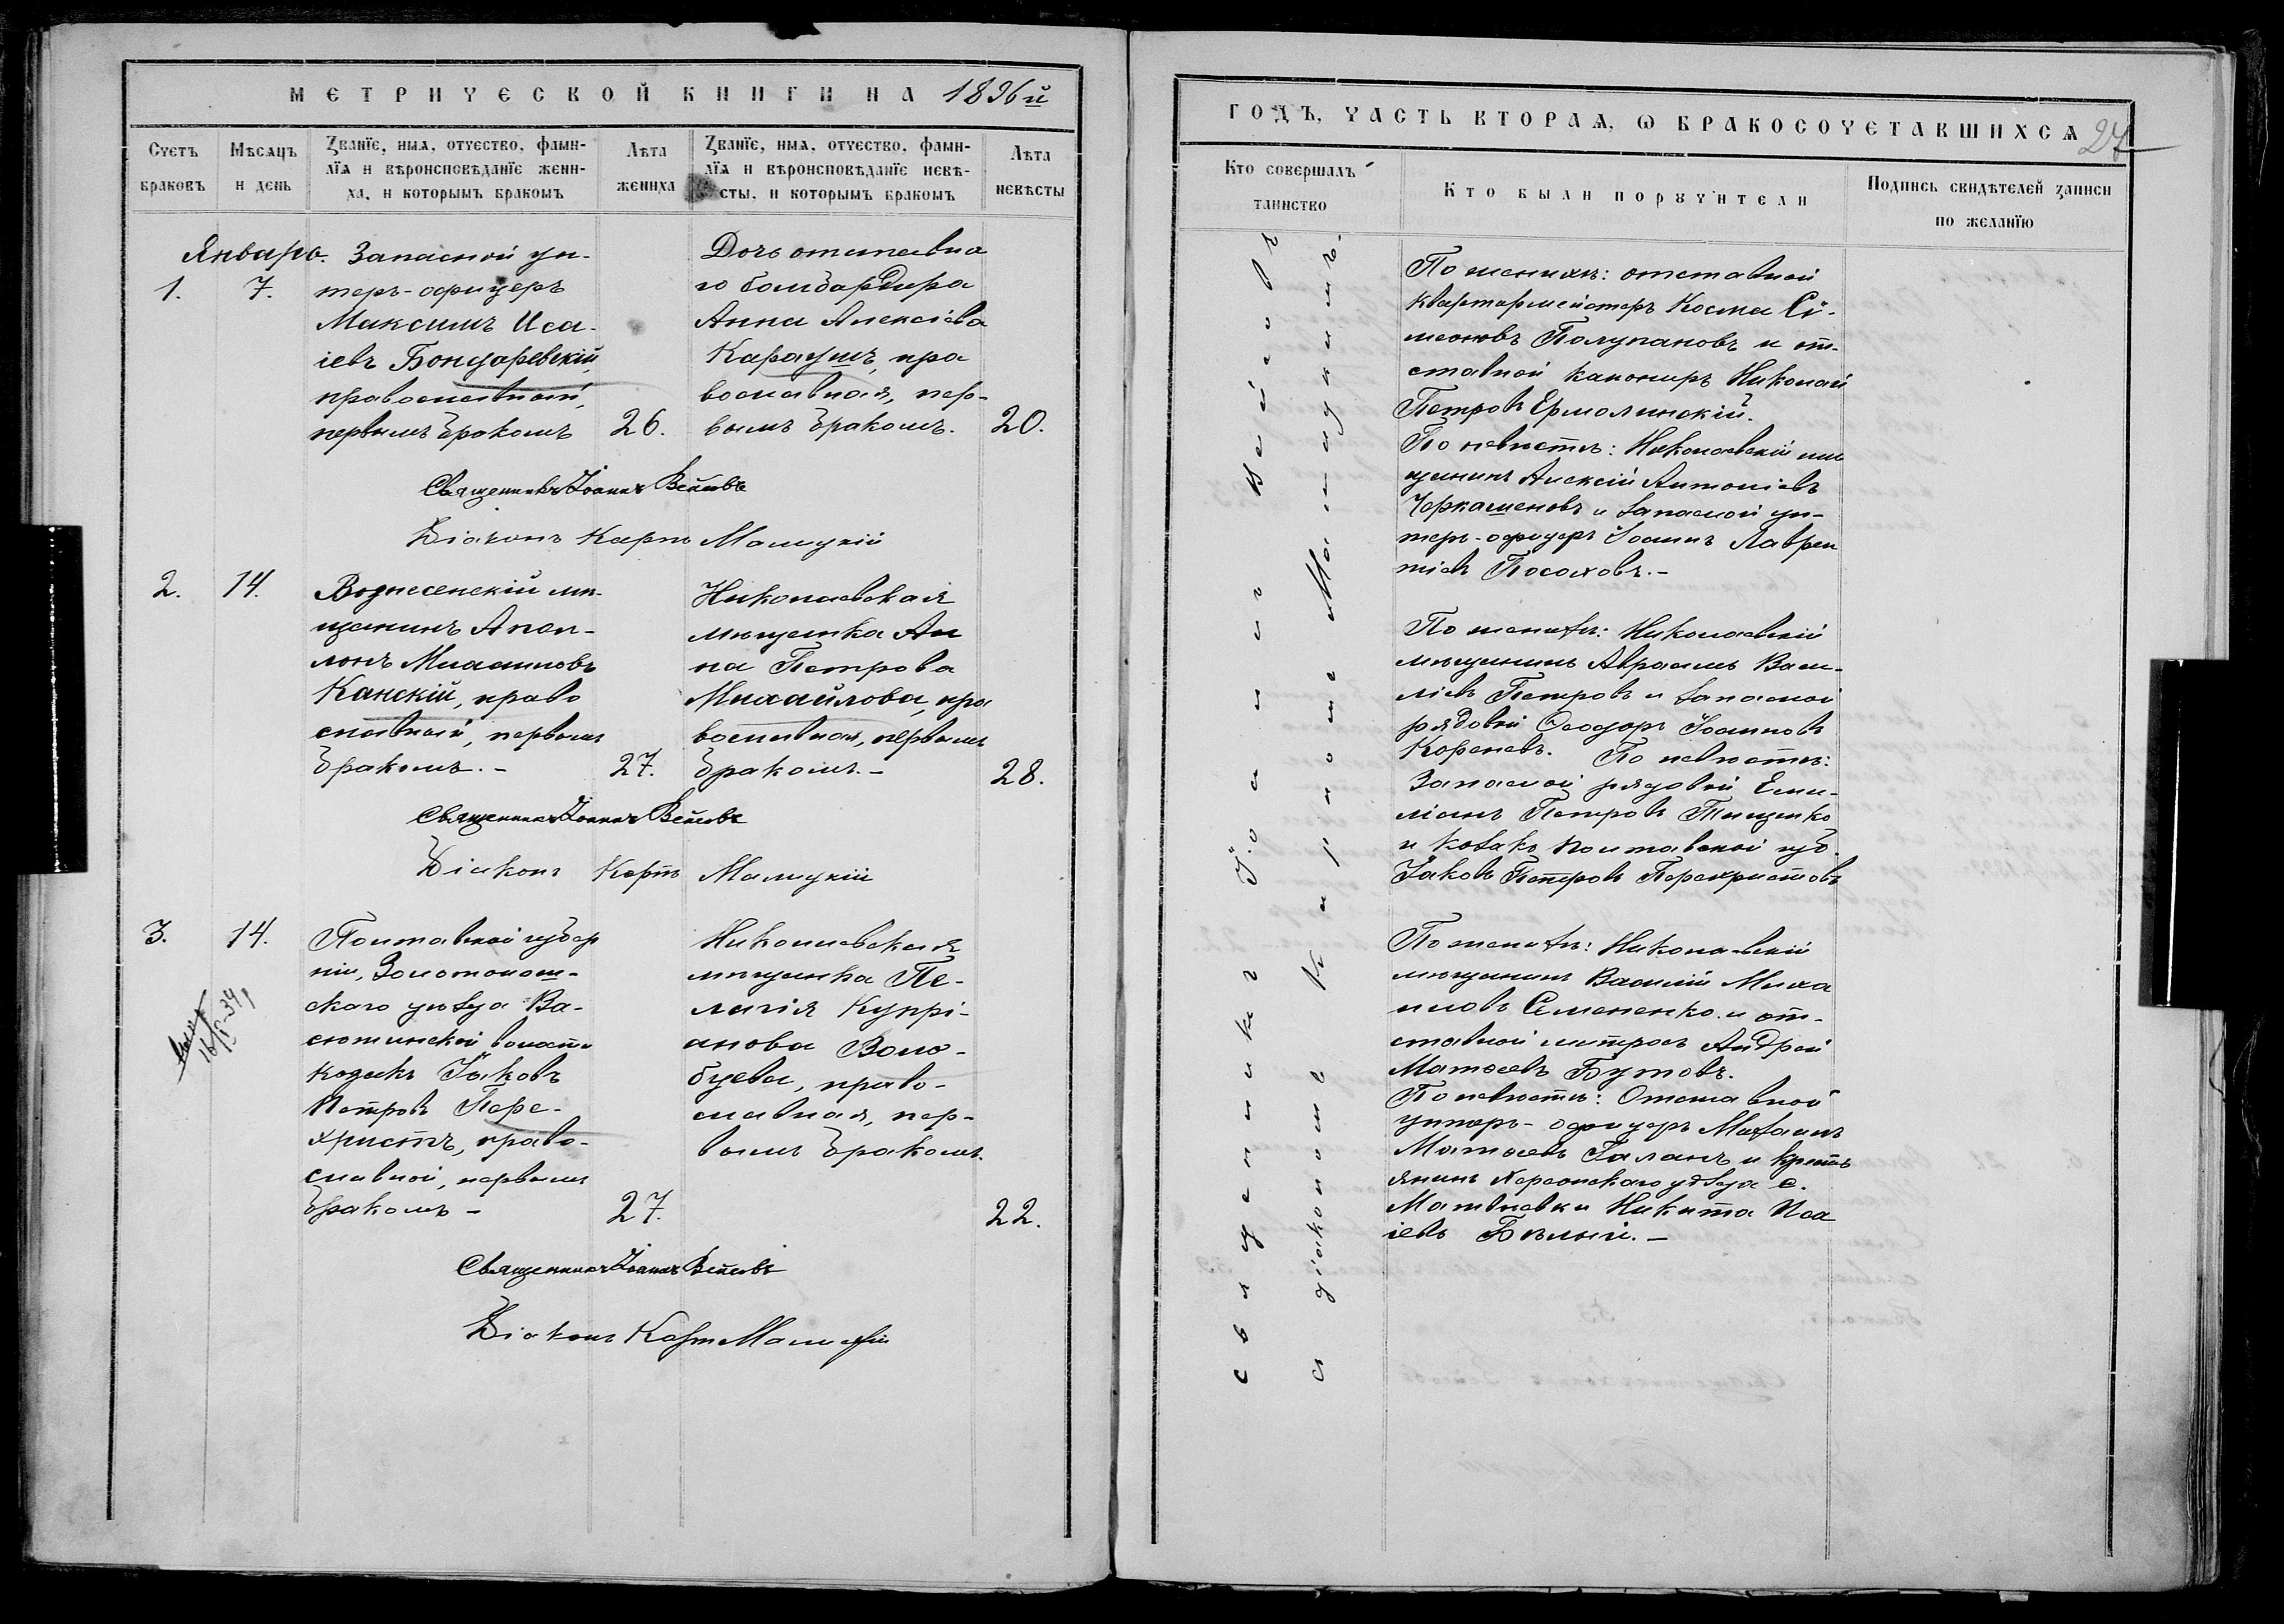 МЕТРИЧЕСКОЙ КНИГИ НА 1896й
Счетъ браковъ
Мѣсяцъ и день
Званїе, имя, отчество, фами-
лїя и вѣроисповѣданїе жени-
ха, и которымъ бракомъ
Лѣта жениха
Званїе, имя, отчество, фами-
лїя и вѣроисповѣданїе невѣ-
сты, и которымъ бракомъ
Лѣта невѣсты
Январь.
1.
7.
Запасной ун-
теръ-офицеръ
Максимъ Иса-
іевъ Бондаревскій,
православный,
первымъ бракомъ
26.
Дочь отставна
го бомбардира
Анна Алексіева
Карауш, пра
вославная, пер-
вымъ бракомъ.
20.
Священникъ Іоаннъ
Діаконъ Карпъ Малицкій
2.
14.
Вознесенскій мѣ-
щанинъ Апол-
лонъ Михаиловъ
Канскій, право
славный, первымъ
бракомъ. -
27.
Николаевская
мѣщанка Ан
на Петрова
Михайлова, пра
вославная, первымъ
бракомъ. -
28.
Священникъ Іоаннъ
Діаконъ Карпъ Малицкій
3.
14.
Полтавской губер
ніи, Золотонош-
скаго уѣзда Ва-
сютинской волости
козакъ Іаковъ
Петровъ Пере-
христъ, право-
славной, первымъ
бракомъ -
27.
Николаевская
мѣщанка Пе-
лагія Купрі-
анова Воло-
буева, право-
славная, пер-
вымъ бракомъ.
22.
Священникъ Іоаннъ
Діаконъ Карпъ Малицкій
ГОДЪ, ЧАСТЬ ВТОРАЯ, Ѡ БРАКОСОЧЕТАВШИХСЯ
27
Кто совершалъ таинство
Кто были порꙋчители
Подпись свидѣтелей записи
по желанїю
Священникъ Іоаннъ
и діакономъ Карпомъ Малицкимъ.
По женихѣ: отставной
квартирмейстеръ Косма Сі-
меоновъ Полупановъ и от-
ставной канониръ Николай
Петровъ Ермолинскій.
По невѣстѣ: Николаевскій мѣ
щанинъ Алексій Антоніевъ
Черкашеновъ и запасной ун-
теръ-офицеръ Іоаннъ Лаврен
тіевъ Посоховъ. -
По женихѣ: Николаевскій
мѣщанинъ Авраамъ Васи-
ліевъ Петровъ и запасной
рядовой Ѳеодоръ Іоанновъ
Кореневъ. По невѣстѣ:
Запасной рядовой Еми-
ліанъ Петровъ Тищенко
и козакъ Полтавской губ.
Іаковъ Петровъ Перехристовъ
По женихѣ: Николаевскій
мѣщанинъ Василій Миха
иловъ Семененко и от-
ставной матросъ Андрей
Матѳеевъ Бутовъ.
По невѣстѣ: Отставной
унтеръ-офицеръ Михаилъ
Матѳеевъ Галанъ и крестъ
янинъ Херсонскаго уѣзда с.
Матвѣевки Никита Иса
іевъ Бѣлый. -